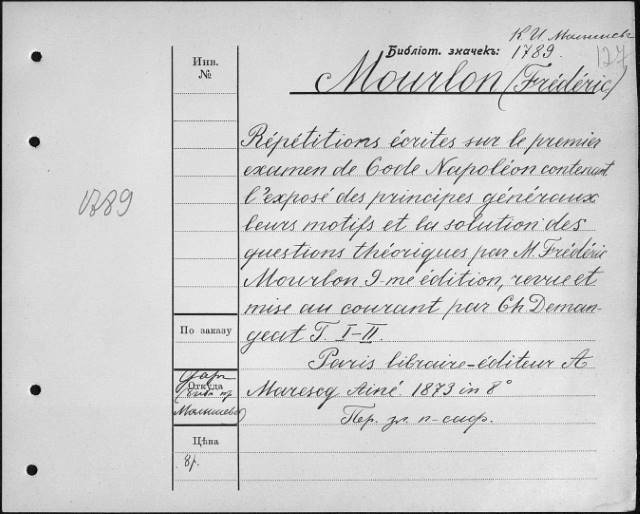 К. И. Малышев
Библіот. значекъ: 1789.
127
Mourlon (Frédéric)
Инв.
№
1789
Répétitions écrites sur le premier
examen de Code Napoléon contenant
l'exposé des principes généraux
leurs motifs et la solution des
questions théoriques par M. Frédéric
Mourlon 9-me édition, revue et
mise au courant par Ch Deman-
geat T. I-II.
Paris libraire-éditeur A
Maresog Ainé. 1873 in 8°
Пер. зл. п-
По заказу
Даръ
Откуда
Малышева
Цѣна
8 р.